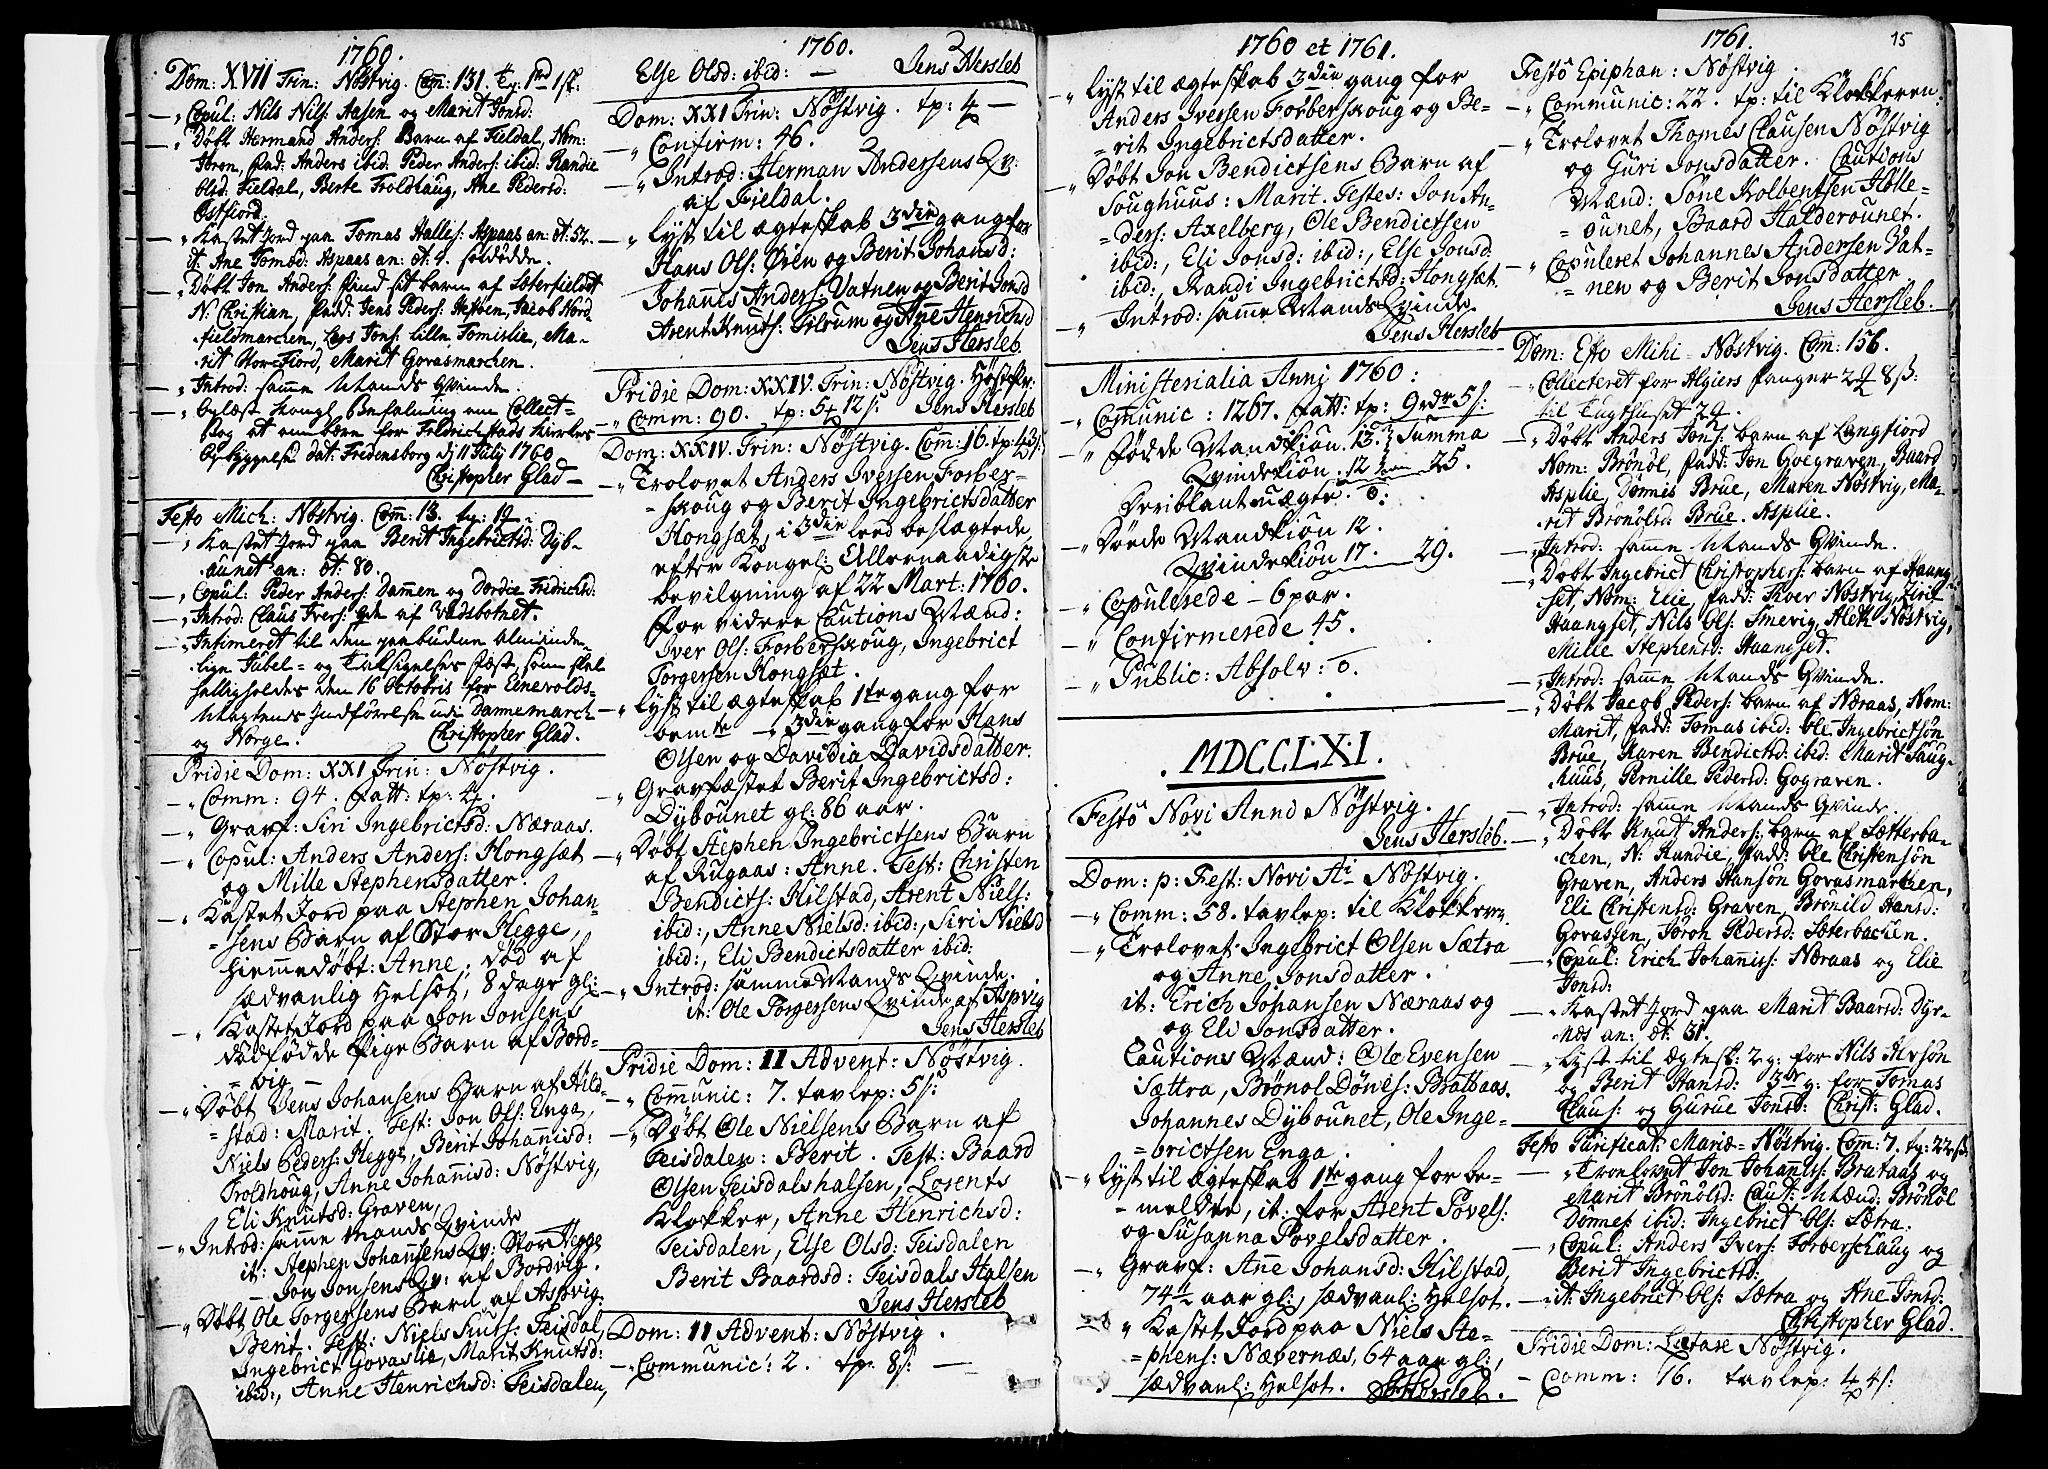 1760.
Dom: XVII Trin: Nøstvig. Com: 131. Tp: 1rd 1sk:
Copul: Nils Nils: Aasen og Marit Jonsd:
Døbt Hermand Anders: Barn af Fieldal, Nom:
Jøren, fad: Anders ibid: Peder Anders: ibid: Randie
Olsd: Fieldal, Berte Troldhaug, Ane Pedersd:
Østfiord.
Kastet Jord paa Tomas Halles: Aspaas an: æt: 52.
it: Ane Tomæd: Aspaas an: æt: 9.
Døbt Jon Anders: barn af Sæterfieldet
N: Christian, fadd: Jens Peders: Hestøen, Jacob Nord-
fieldmarchen, Lars Jons: Lille Fomilie, Ma-
rit Storefiord, Marit Govasmarchen.
Introd: samme Mands Qvinde.
Oplæst Kongl. Befalning om Collect-
Bog at ombære for Fredrichstads Kirckes
Opbyggelse dat: Fredensborg d: 11 July 1760
Christopher Glad
Festo Mich: Nøstvig. Com: 13. tp:
Kastet Jord paa Berit Ingebrictsd: Dyb-
aunet an: æt: 80.
Copul: Peder Anders: Dammen og Dordie Fridrichsd:
Introd: Claus Ivers: Qde af Vadsbotnet.
Intimeret til den paabudne Alminde-
lige Jubel- og Taksigelses fæst, som skal
helligholdes den 16 Octobris for Enevolds-
Magtens Indførelse udi Dannemarch
og Norge. Christopher Glad.
Pridie Dom: XXI Trin: Nøstvig.
Comm: 94. fatt: tp: 4
Grafs: Siri Ingebrictsd: Næraas.
Copul: Anders Anders: Hongsæt
og Mille Stephensdatter.
Kastet Jord paa Stephen Johan-
sens Barn af Stor Hegge,
hiemmedøbt: Anne; død af
sædvanlig Helsot, 8 dage gl:
Kastet Jord paa Jon Jonsens
dødfødde Pige Barn af Bord-
vig
Døbt Jens Johansens Barn af Kild-
stad: Marit. Test: Jon Ols: Enga,
Niels Peders: Hegge, Berit Johannisd:
Troldhoug, Anne Johannisd: Nøstvig,
Eli Knutsd: Graven,
Introd: samme Mands Qvinde
it: Stephen Johansens Qv: Stor Hegge
Jon Jonsens Qv: af Bordvig.
Døbt Ole Torgersens Barn af Aspvig:
Berit. Test: Niels Knuts: Teisdal,
Ingebrict Govaslia, Marit Knutsd:
ibid:, Anne Henrichsd: Teisdalen,
1760.
Else Olsd: ibid: Jens Hersleb
Dom: XXI Trin: Nøstvig. tp: 4
Confirm: 46.
Introd: Herman Andersens Qv:
af Fieldal.
Lyst til ægteskab 3die gang for
Hans Ols: Øien og Berit Johansd:
Johannis Anders: Vatnen og Berit Jonsd
Arent Knuts: Tilrum og Ane Henrichsd
Jens Hersleb.
Pridie Dom: XXIV. Trin: Nøstvig. Høstofr:
Comm: 90. tp: 5 12 s: Jens Hersleb
Dom: XXIV. Trin: Nøstvig. Com: 16. tp: 43 s:
Trolovet Anders Iversen Forber-
skoug og Berit Ingebrictsdatter
Hongsæt, i 3die leed beslægtede,
efter Kongel: Allernaadigste
bevilgning af 22 Mart: 1760.
For videre Cautions Mænd:
Iver Ols: Forberskoug, Ingebrict
Torgersen Hongsæt.
Lyst til ægteskab 1te gang for
bemte 3die gang for Hans
Olsen og Davidia Davidsdatter.
Gravfæstet Berit Ingebrictsd:
Dybounet gl: 86 aar.
Døbt Stephen Ingebrictsens Barn
af Rugaas: Anne. Test: Christen
Bendicts: Hilstad, Arent Niels:
ibid:, Anne Nielsd: ibid:, Siri Nielsd
ibid:, Eli Bendictsdatter ibid:
Introd: samme Mands Qvinde.
it: Ole Torgersens Qvinde af Aspvig
Jens Hersleb
Pridie Dom: II Advent: Nøstvig.
Communic: 7. tavlep: 5 s:
Døbt Ole Nielsens Barn af
Teisdalen: Berit. Test: Baard
Olsen Teisdalshalsen, Lorents
Klokker, Anne Henrichsd:
Teisdalen, Else Olsd: Teisdalen
Berit Baardsd: Teisdals Halsen
Jens Hersleb
Dom: II Advent: Nøstvig.
Communic: 2. tp. 8 s:
1760 et 1761.
Lyst til ægteskab 3die gang for
Anders Iversen Forberskoug og Be-
rit Ingebrictsdatter.
Døbt Jon Bendictsens Barn af
Soughuus: Marit. Testes: Jon An-
ders: Axelberg, Ole Bendictsen
ibid:, Eli Jonsd: ibid:, Else Jonsd:
ibid:, Randi Ingebrictsd: Hongsæt.
Introd: samme Mands Qvinde
Jens Hersleb
Ministerialia Anni 1760:
Communic: 1267. fatt: tp: 9 rdr 5 s:
Fødde Mandkiøn. 13. Summa
Qvindekiøn. 12 25.
Heriblant uægte. 0:
Døede Mandkiøn 12.
Qvindekiøn 17. 29.
Copulerede - 6 par.
Confirmerede 45.
Public: Absolv: 0.
MDCCLXI.
Festo Novi Anni Nøstvig.
Jens Hersleb.
Dom: p: Fest: Novi Ai Nøstvig.
Comm: 58. tavlep: til Klokkeren
Trolovet Ingebrict Olsen Sætra
og Anne Jonsdatter.
it: Erich Johansen Næraas og
og Eli Jonsdatter.
Cautions Mænd: Ole Evensen
Sættra, Brønol Dønes: Bratbaas.
Johannes Dybounet, Ole Inge-
brictsen Enga.
Lyst til Ægteskab 1te gang for be-
meldte, it: for Arent Povels:
og Susanna Povelsdatter.
Gravf: Anne Johansd: Hilstad,
74½ aar gl:, sædvanl: Helsot.
Kastet Jord paa Niels Ste-
phens: Nævernæs, 64 aar gl:,
sædvanl: Helsot. JHersleb.
1761. 15
Festo Epiphan: Nøstvig.
Communic: 22. tp: til Klokkeren:
Trolovet Thomes Clausen Nøstvig
og Guri Jonsdatter. Cautions
Mænd: Søne Kolbentsen Holle-
ounet, Baard Halderounet.
Copuleret Johannes Andersen Vat-
nen og Berit Jonsdatter.
Jens Hersleb.
Dom: Esto Mihi - Nøstvig. Com: 156.
Collecteret for Algiers fanger 8 ß:
til Tugthuset
Døbt Anders Jons: barn af Langfiord
Nom: Brønøl, fadd: Jon Goegraven, Baard
Asplie, Dønnis Brue, Maren Nøstvig, Ma-
rit Brønølsd: Brue. Asplie.
Introd: samme Mands Qvinde.
Døbt Ingebrict Christophers: barn af Haang-
set, Nom: Elie, fadd: Iver Nøstvig, Eirik
Haangset, Nils Ols: Smevig, Aleth Nøstvig,
Mille Stephensd: Haangset.
Introd: samme Mands Qvinde.
Døbt Jacob Peders: barn af Næraas, Nom:
Marit, fadd: Tomas ibid: Ole Ingebrictsøn
Brue, Karen Bendictsd: ibid: Marit Saug-
huus, Pernille Pedersd: Gograven.
Introd: samme Mands Qvinde.
Døbt Knut Anders: barn af Sætterba-
chen, N: Randie, fadd: Ole Christensøn
Graven, Anders Hansøn Govasmarchen,
Eli Christensd: Graven, Brønild Hansd:
Govassen, Jørøn Pedersd: Sæterbachen.
Copul: Erich Johannis: Næraas og Elie
Jonsd:
Kastet Jord paa Marit Baarsd: Dyr-
næs an: æt: 31.
Lyst til Ægtesk: 2 g: for Nils Iversøn
og Berit Hansd: 3de g: for Tomas
Claus: og Gurue Jonsd: Christ: Glad.
Festo Purificat: Mariæ - Nøstvig. Com: 7. tp: 22 ß:
Troelovet Jon Johannis: Brataas og
Marit Brønølsd: Caut: Mænd: Brønøl
Dønnes: ibid: Ingebrict Ols: Sætra.
Copul: Anders Ivers: Forberschaug og
Berit Ingebrictsd:
it: Ingebrict Ols: Sætra og Ane Jonsd:
Christopher Glad.
Pridie Dom: Lætare Nøstvig.
Comm: 16. tavlep: 4 4 s: